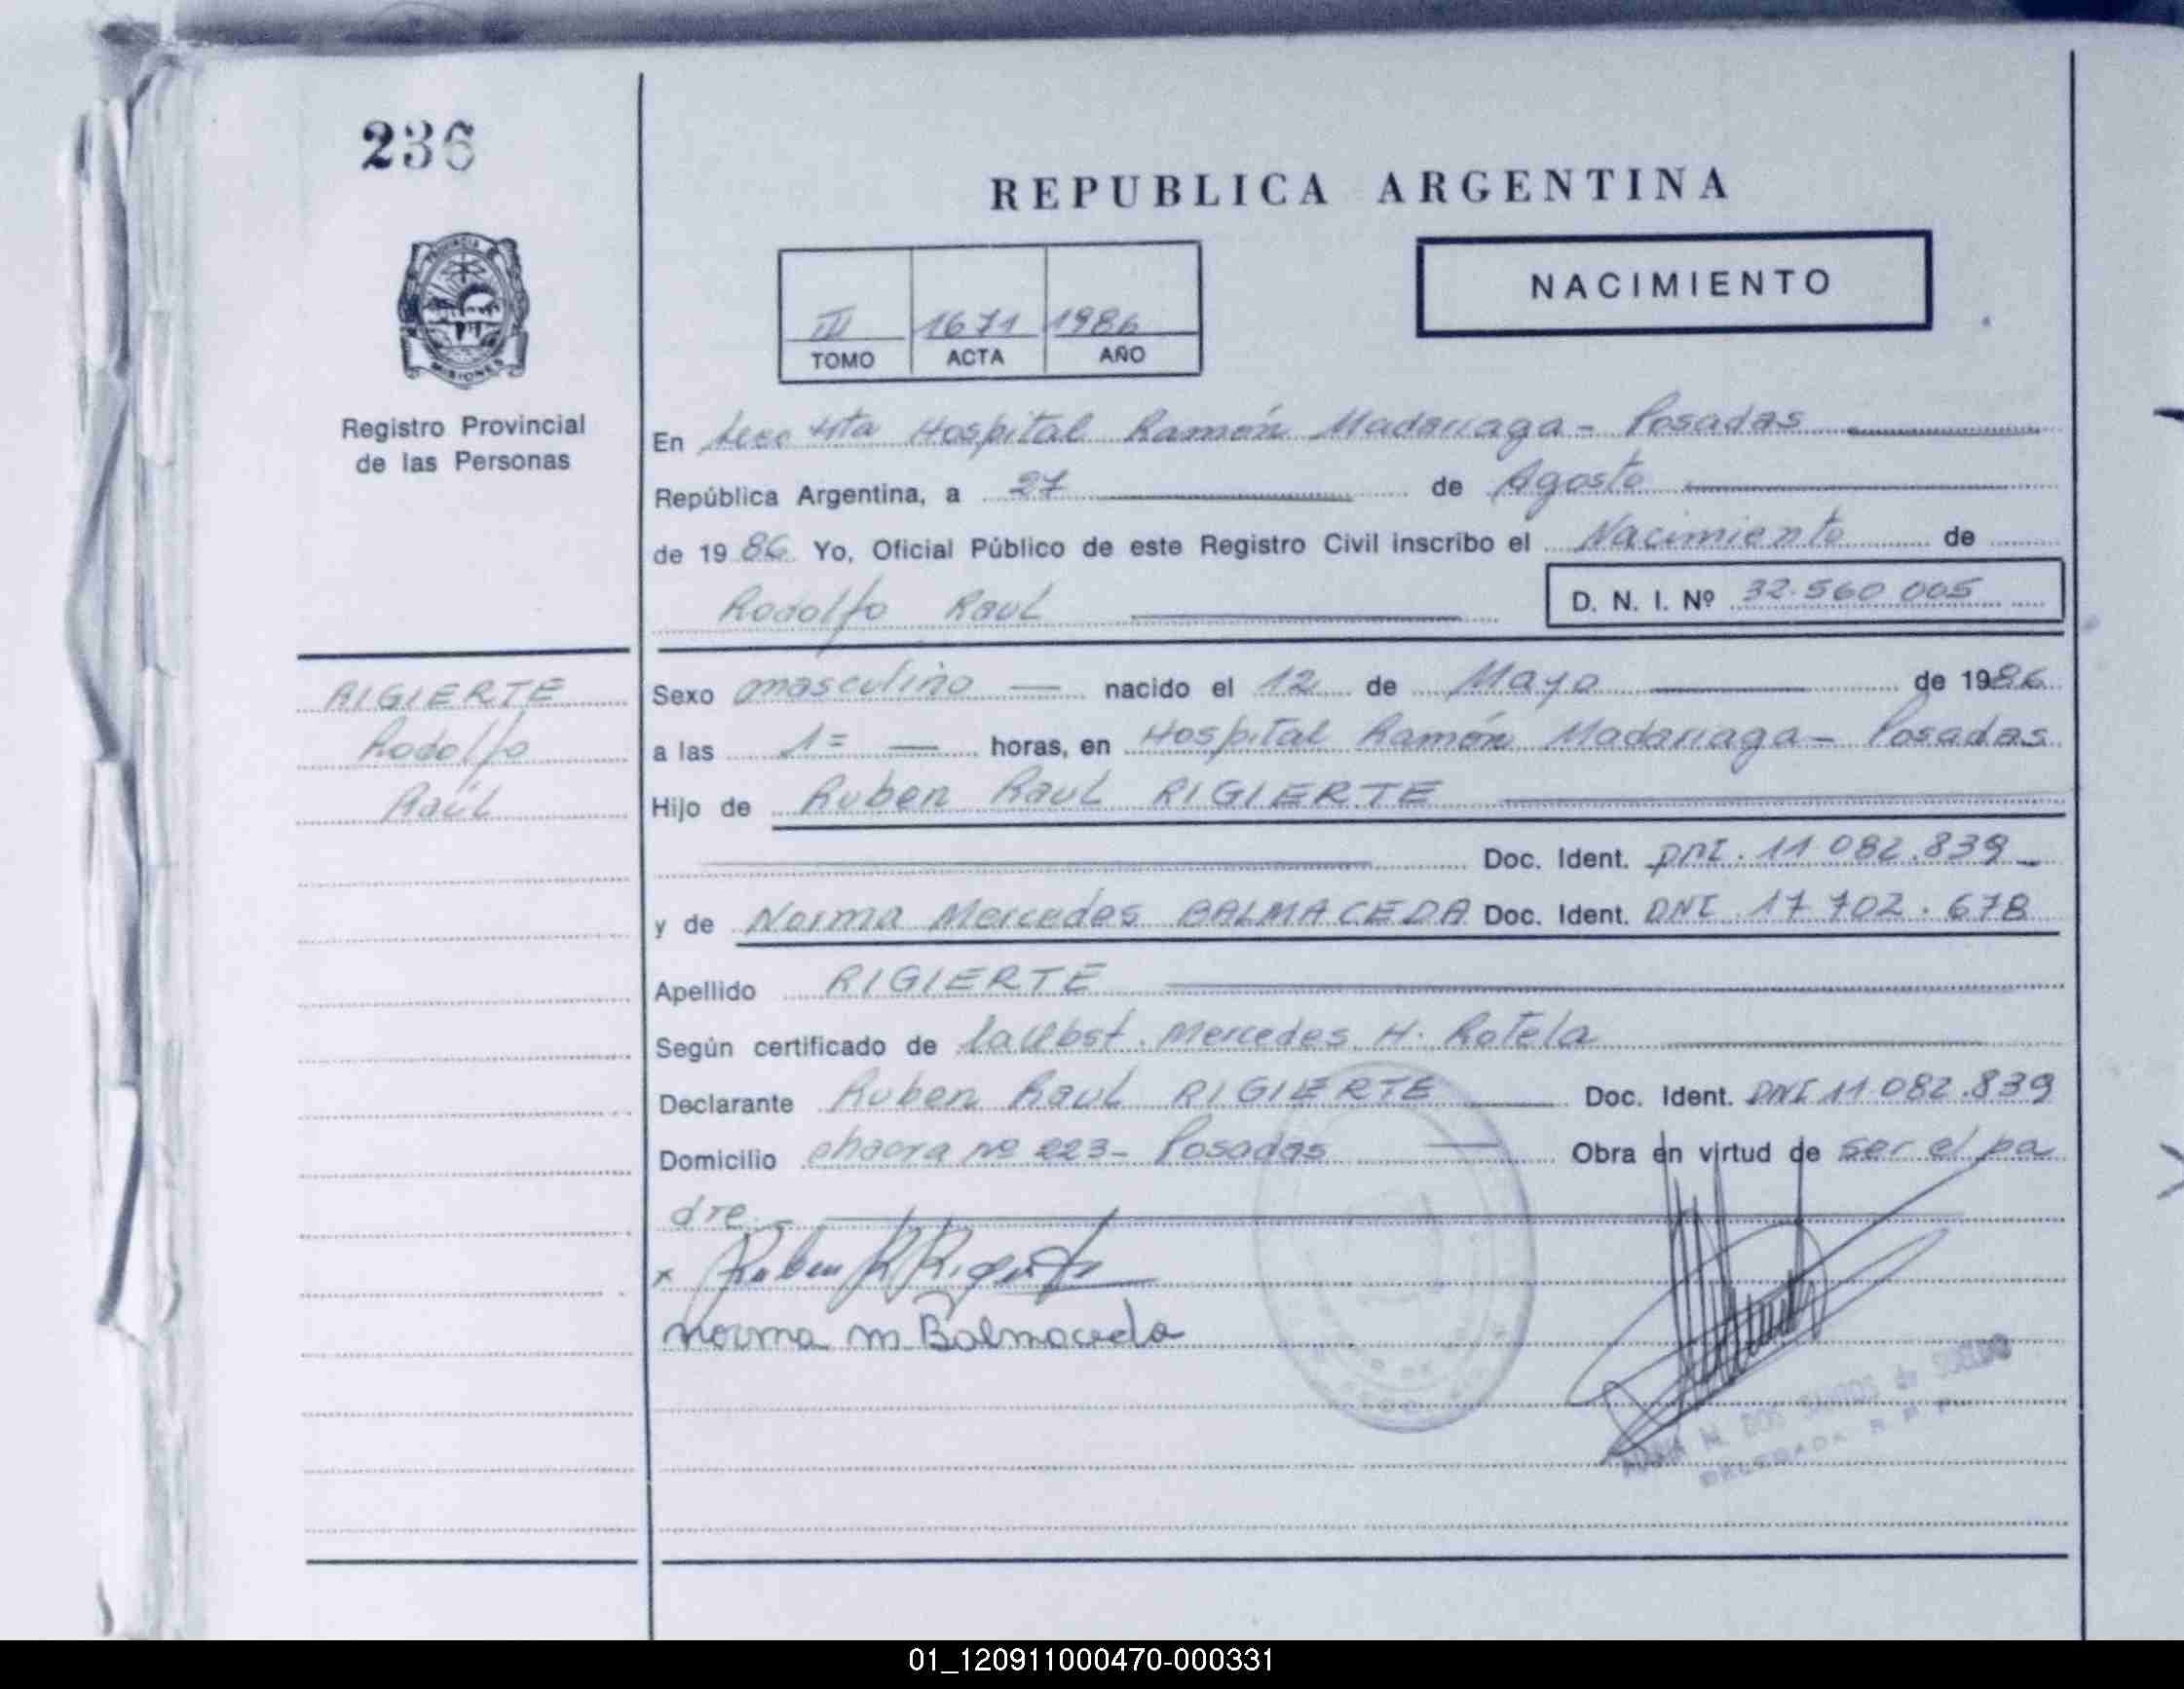 236
REPUBLICA ARGENTINA
NACIMIENTO
PROVINCIA DE
MISIONES
Registro Provincial
de las Personas
III 1671 1986
TOMO ACTA AÑO
En Secc 4ta Hospital Ramón Madariaga - Posadas
República Argentina, a 27 de Agosto
de 1986 Yo, Oficial Público de este Registro Civil inscribo el Nacimiento de
Rodolfo Raul D. N. I. Nº 32.560.005
RIGIERTE
Rodolfo
Raúl
Sexo masculino — nacido el 12 de Mayo de 1986
a las 1= — horas, en Hospital Ramón Madariaga - Posadas
Hijo de Ruben Raul RIGIERTE
Doc. Ident. DNI. 11.082.839
y de Norma Mercedes BALMACEDA Doc. Ident. DNI 17.702.678
Apellido RIGIERTE
Según certificado de la Obst. Mercedes H. Rotela
Declarante Ruben Raul RIGIERTE Doc. Ident. DNI 11.082.839
Domicilio chacra nº 223 - Posadas — Obra en virtud de ser el pa
dre. -
x Ruben R Rigierte
Norma M. Balmaceda
M. DOS SANTOS de
DELEGADA R P P
01_120911000470-000331